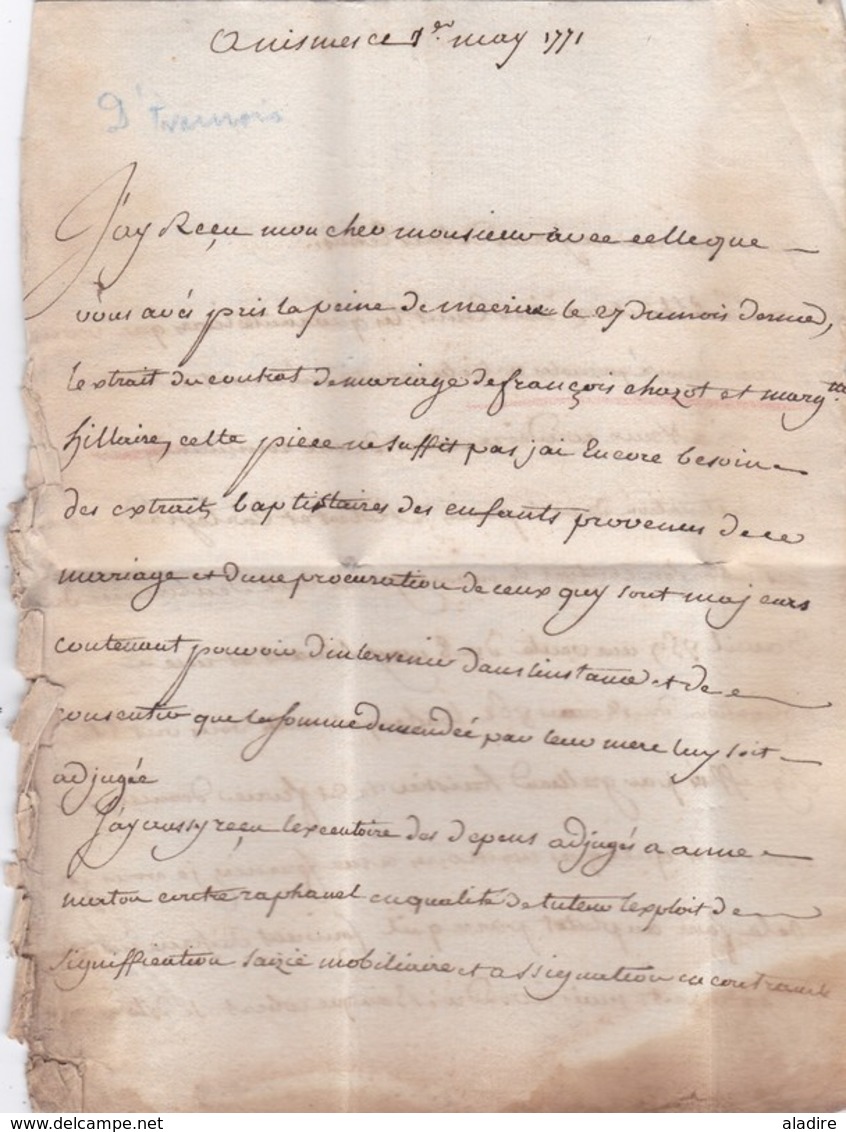 A nismes ce 1er may 1771
D'
J'ay Reçu mon cher monsieur avec celle que
vous avés pris la peine de mecrire le 27 du mois dernier,
lextrait du contrat de mariage de françois chazot et marg.tte
hillaire, cette piece ne suffit pas jai Encore besoin
des extraits baptistaires des enfants provenus de ce
mariage et d'une procuration de ceux quy sont majeurs
contenant pouvoir d'intervenir dans linstance et de
consentir que la somme demendée par leur mere luy soit
adjugée
J'ay aussy reçu lexecutoire des depens adjugés a anne
raphanel en qualité de tuteur lexploit de
signiffication saizie mobiliaire et assignation en contrainte
www.delcampe.net
aladire